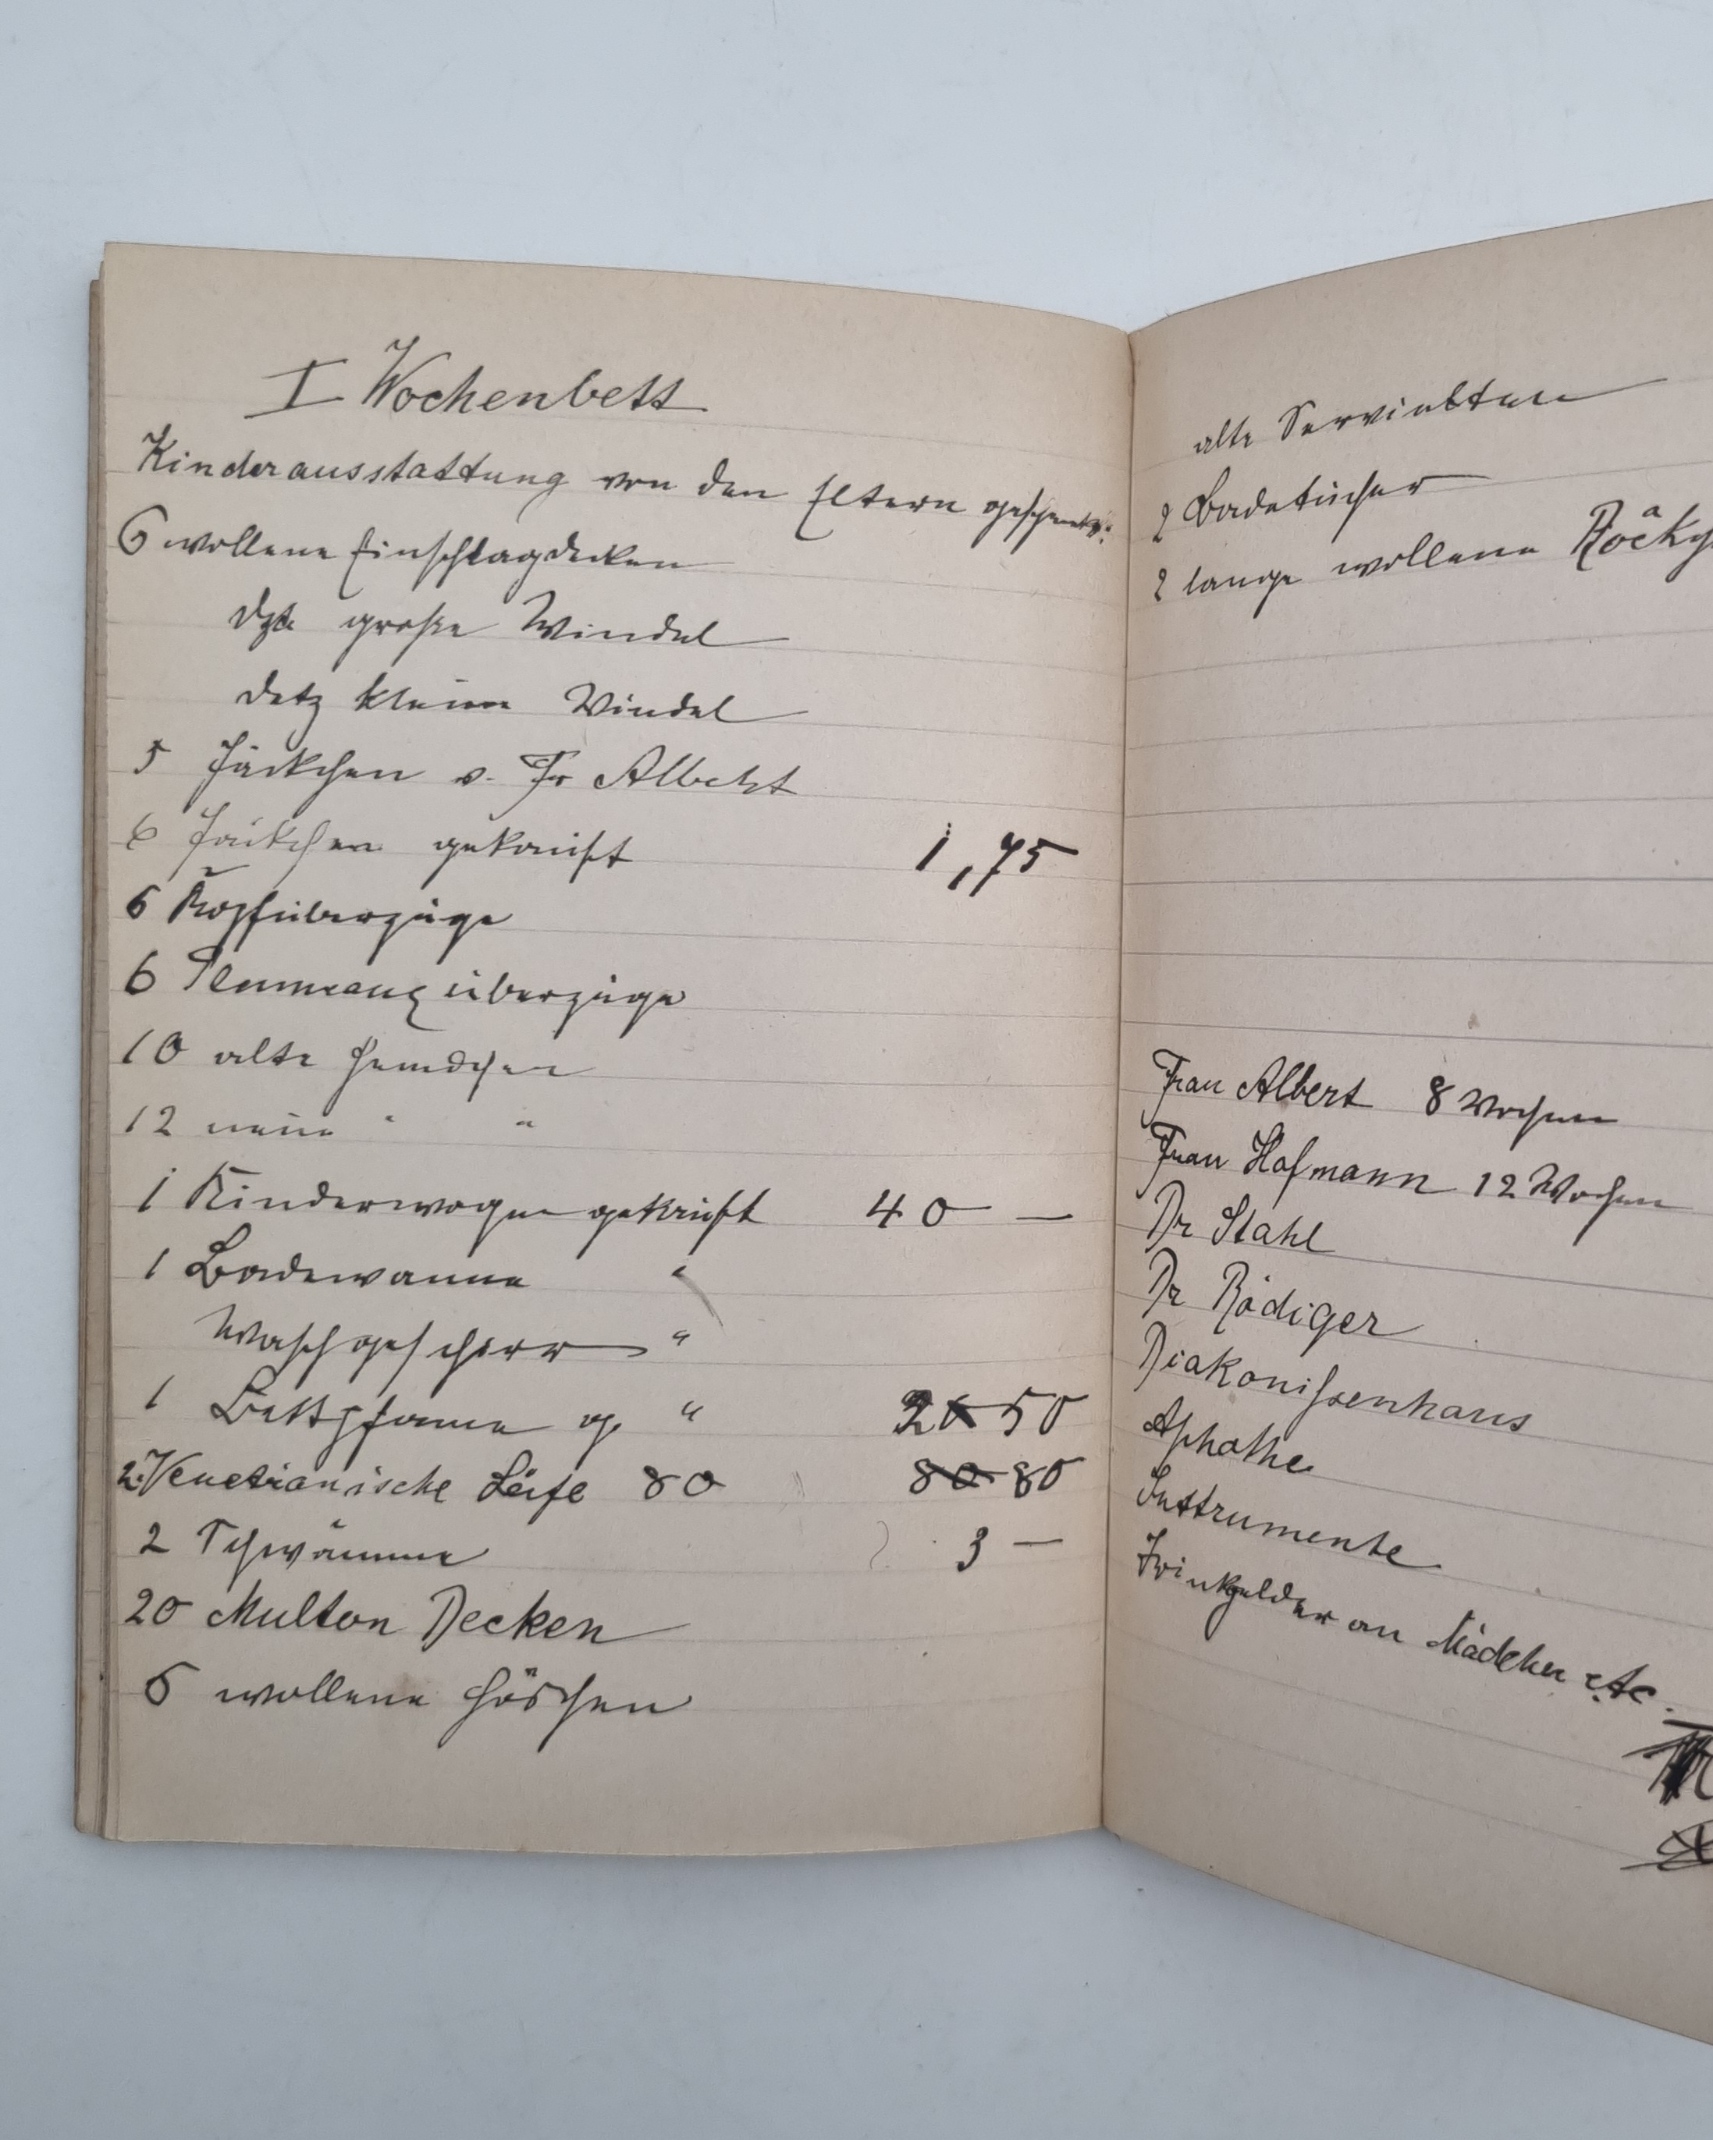 I Wochenbett
Kinderausstattung von den Eltern geschenkt:
6 wollene Einschlagdecken
große Windel
kleine Windel
5 Jäckchen v. Fr Albert
6 Jäckchen gekauft 1,75
6 Kopfüberzüge
6 überzüge
10 alte Hemdchen
12 neue " "
1 Kinderwagen gekauft 40 —
1 Badewanne "
Waschgeschirr "
1 Bettpfanne " 50
2 Venetianische Seife 80 80 80
2 Schwämme 3 —
20 Multon Decken
6 wollene Höschen
alte Servietten
2 Badetücher
2 lange wollene
Frau Albert 8 Wochen
Frau Hofmann 12 Wochen
Dr Stahl
Dr Rödiger
Diakonissenhaus
Aphothe
Instrumente
Trinkgelder an Mädchen etc.